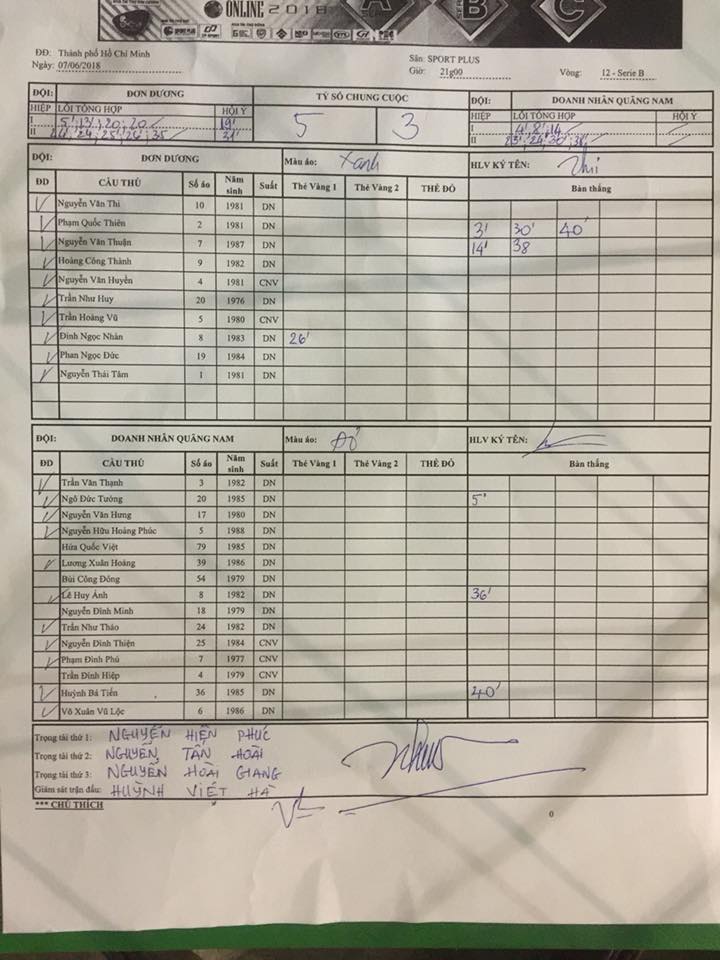 ONLINE 2018
A B C
ĐĐ: Thành phố Hồ Chí Minh Sân: SPORT PLUS
Ngày: 07/06/2018 Giờ: 21g00 Vòng: 12 - Serie B
ĐỘI: ĐƠN DƯƠNG TỶ SỐ CHUNG CUỘC ĐỘI: DOANH NHÂN QUẢNG NAM
HIỆP LỖI TỔNG HỢP HỘI Ý 5 3 HIỆP LỖI TỔNG HỢP HỘI Ý
I 5', 13', 20, 20 19' I 4', 8', 14
II 24', 24, 25', 26', 35 31' II 23', 24, 30',
ĐỘI: ĐƠN DƯƠNG Màu áo: Xanh HLV KÝ TÊN:
ĐD CẦU THỦ Số áo Năm sinh Suất Thẻ Vàng 1 Thẻ Vàng 2 THẺ ĐỎ Bàn thắng
Nguyễn Văn Thi 10 1981 DN
Phạm Quốc Thiên 2 1981 DN 3' 30' 40'
Nguyễn Văn Thuận 7 1987 DN 14' 38
Hoàng Công Thành 9 1982 DN
Nguyễn Văn Huyền 4 1981 CNV
Trần Như Huy 20 1976 DN
Trần Hoàng Vũ 5 1980 CNV
Đinh Ngọc Nhân 8 1983 DN 26'
Phan Ngọc Đức 19 1984 DN
Nguyễn Thái Tâm 1 1981 DN
ĐỘI: DOANH NHÂN QUẢNG NAM Màu áo: Đỏ HLV KÝ TÊN:
ĐD CẦU THỦ Số áo Năm sinh Suất Thẻ Vàng 1 Thẻ Vàng 2 THẺ ĐỎ Bàn thắng
Trần Văn Thạnh 3 1982 DN
Ngô Đức Tưởng 20 1985 DN 5'
Nguyễn Văn Hưng 17 1980 DN
Nguyễn Hữu Hoàng Phúc 5 1988 DN
Hứa Quốc Việt 79 1985 DN
Lương Xuân Hoàng 39 1986 DN
Bùi Công Đồng 54 1979 DN
Lê Huy Ánh 8 1982 DN 36'
Nguyễn Đình Minh 18 1979 DN
Trần Như Thảo 24 1982 DN
Nguyễn Đình Thiện 25 1984 CNV
Phạm Đình Phú 7 1977 CNV
Trần Đình Hiệp 4 1979 CNV
Huỳnh Bá Tiến 36 1985 DN 40'
Võ Xuân Vũ Lộc 6 1986 DN
Trọng tài thứ 1: NGUYỄN HIỆN PHÚC
Trọng tài thứ 2: NGUYỄN TẤN HOÀI
Trọng tài thứ 3: NGUYỄN HOÀI GIANG
Giám sát trận đấu: HUỲNH VIỆT HÀ
*** CHÚ THÍCH
0